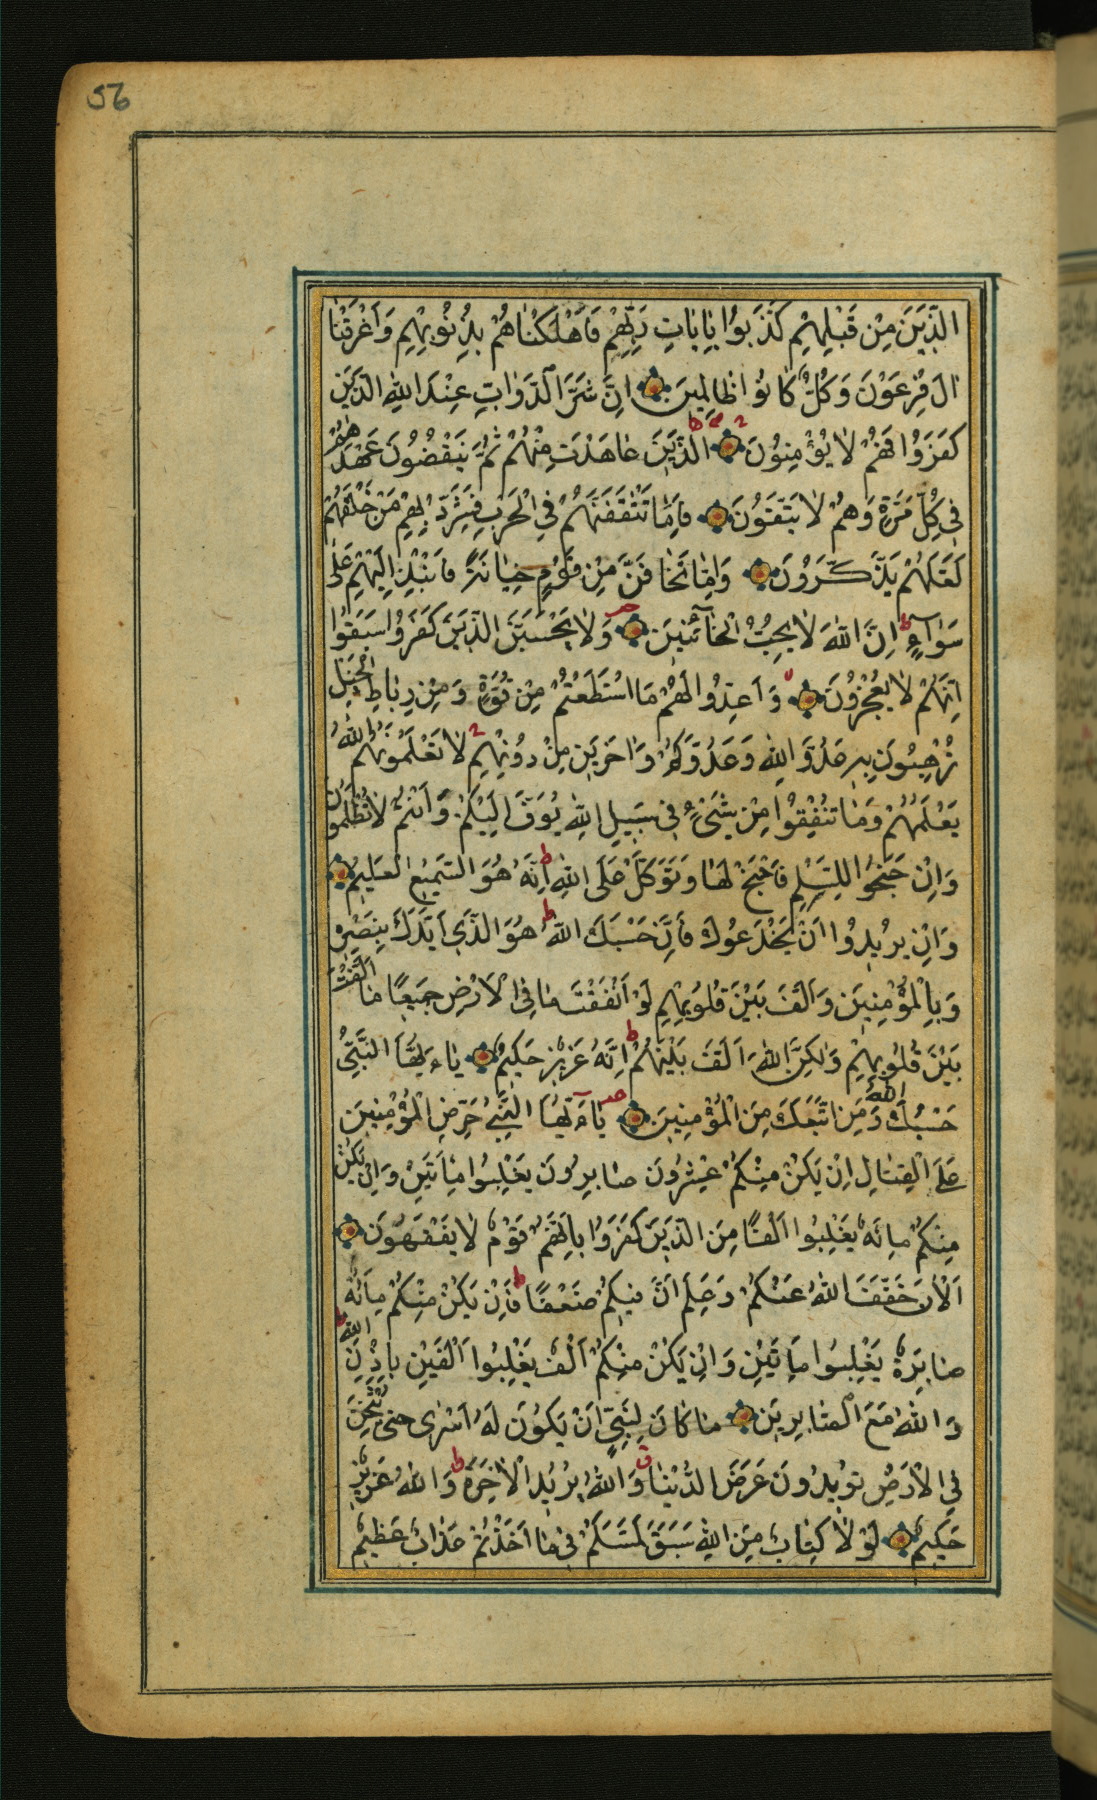 56
الَّذِينَ مِنْ قَبْلِهِمْ كَذَّبُوا بِاٰيَاتِ رَبِّهِمْ فَاَهْلَكْنَاهُمْ بِذُنُوبِهِمْ وَاَغْرَقْنَا
اٰلَ فِرْعَوْنَ وَكُلٌّ كَانُوا ظَالِمِينَ اِنَّ شَرَّ الدَّوَابِّ عِنْدَ اللهِ الَّذِينَ
كَفَرُوا فَهُمْ لَا يُؤْمِنُونَ الَّذِينَ عَاهَدْتَ مِنْهُمْ ثُمَّ يَنْقُضُونَ عَهْدَهُمْ
فِي كُلِّ مَرَّةٍ وَهُمْ لَا يَتَّقُونَ فَاِمَّا تَثْقَفَنَّهُمْ فِي الْحَرْبِ فَشَرِّدْ بِهِمْ مَنْ خَلْفَهُمْ
لَعَلَّهُمْ يَذَّكَّرُونَ وَاِمَّا تَخَافَنَّ مِنْ قَوْمٍ خِيَانَةً فَانْبِذْ اِلَيْهِمْ عَلٰى
سَوَاۤءٍ ط اِنَّ اللهَ لَا يُحِبُّ الْخَاۤئِنِينَ وَلَا يَحْسَبَنَّ الَّذِينَ كَفَرُوا سَبَقُوا
اِنَّهُمْ لَا يُعْجِزُونَ وَاَعِدُّوا لَهُمْ مَا اسْتَطَعْتُمْ مِنْ قُوَّةٍ وَمِنْ رِبَاطِ الْخَيْلِ
تُرْهِبُونَ بِهِ عَدُوَّ اللهِ وَعَدُوَّكُمْ وَاٰخَرِينَ مِنْ دُونِهِمْ لَا تَعْلَمُونَهُمْ اللهُ
يَعْلَمُهُمْ وَمَا تُنْفِقُوا مِنْ شَيْءٍ فِي سَبِيلِ اللهِ يُوَفَّ اِلَيْكُمْ وَاَنْتُمْ لَا تُظْلَمُونَ
وَاِنْ جَنَحُوا لِلسَّلْمِ فَاجْنَحْ لَهَا وَتَوَكَّلْ عَلَى اللهِ ط اِنَّهُ هُوَ السَّمِيعُ الْعَلِيمُ
وَاِنْ يُرِيدُوا اَنْ يَخْدَعُوكَ فَاِنَّ حَسْبَكَ اللهُ ط هُوَ الَّذِي اَيَّدَكَ بِنَصْرِهِ
وَبِالْمُؤْمِنِينَ وَاَلَّفَ بَيْنَ قُلُوبِهِمْ لَوْ اَنْفَقْتَ مَا فِي الْاَرْضِ جَمِيعًا مَا اَلَّفْتَ
بَيْنَ قُلُوبِهِمْ وَلٰكِنَّ اللهَ اَلَّفَ بَيْنَهُمْ ط اِنَّهُ عَزِيزٌ حَكِيمٌ يَاءَيُّهَا النَّبِيُّ
حَسْبُكَ اللهُ وَمَنِ اتَّبَعَكَ مِنَ الْمُؤْمِنِينَ يَاۤءَيُّهَا النَّبِيُّ حَرِّضِ الْمُؤْمِنِينَ
عَلَى الْقِتَالِ اِنْ يَكُنْ مِنْكُمْ عِشْرُونَ صَابِرُونَ يَغْلِبُوا مِاَتَيْنِ وَاِنْ يَكُنْ
مِنْكُمْ مِائَةٌ يَغْلِبُوا اَلْفًا مِنَ الَّذِينَ كَفَرُوا بِاَنَّهُمْ قَوْمٌ لَا يَفْقَهُونَ
اَلْاٰنَ خَفَّفَ اللهُ عَنْكُمْ وَعَلِمَ اَنَّ فِيكُمْ ضَعْفًا ط فَاِنْ يَكُنْ مِنْكُمْ مِائَةٌ
صَابِرَةٌ يَغْلِبُوا مِاَتَيْنِ وَاِنْ يَكُنْ مِنْكُمْ اَلْفٌ يَغْلِبُوا اَلْفَيْنِ بِاِذْنِ اللهِ ط
وَاللهُ مَعَ الصَّابِرِينَ مَا كَانَ لِنَبِيٍّ اَنْ يَكُونَ لَهُ اَسْرٰى حَتّٰى يُثْخِنَ
فِي الْاَرْضِ تُرِيدُونَ عَرَضَ الدُّنْيَا ق وَاللهُ يُرِيدُ الْاٰخِرَةَ ط وَاللهُ عَزِيزٌ
حَكِيمٌ لَوْلَا كِتَابٌ مِنَ اللهِ سَبَقَ لَمَسَّكُمْ فِي مَا اَخَذْتُمْ عَذَابٌ عَظِيمٌ